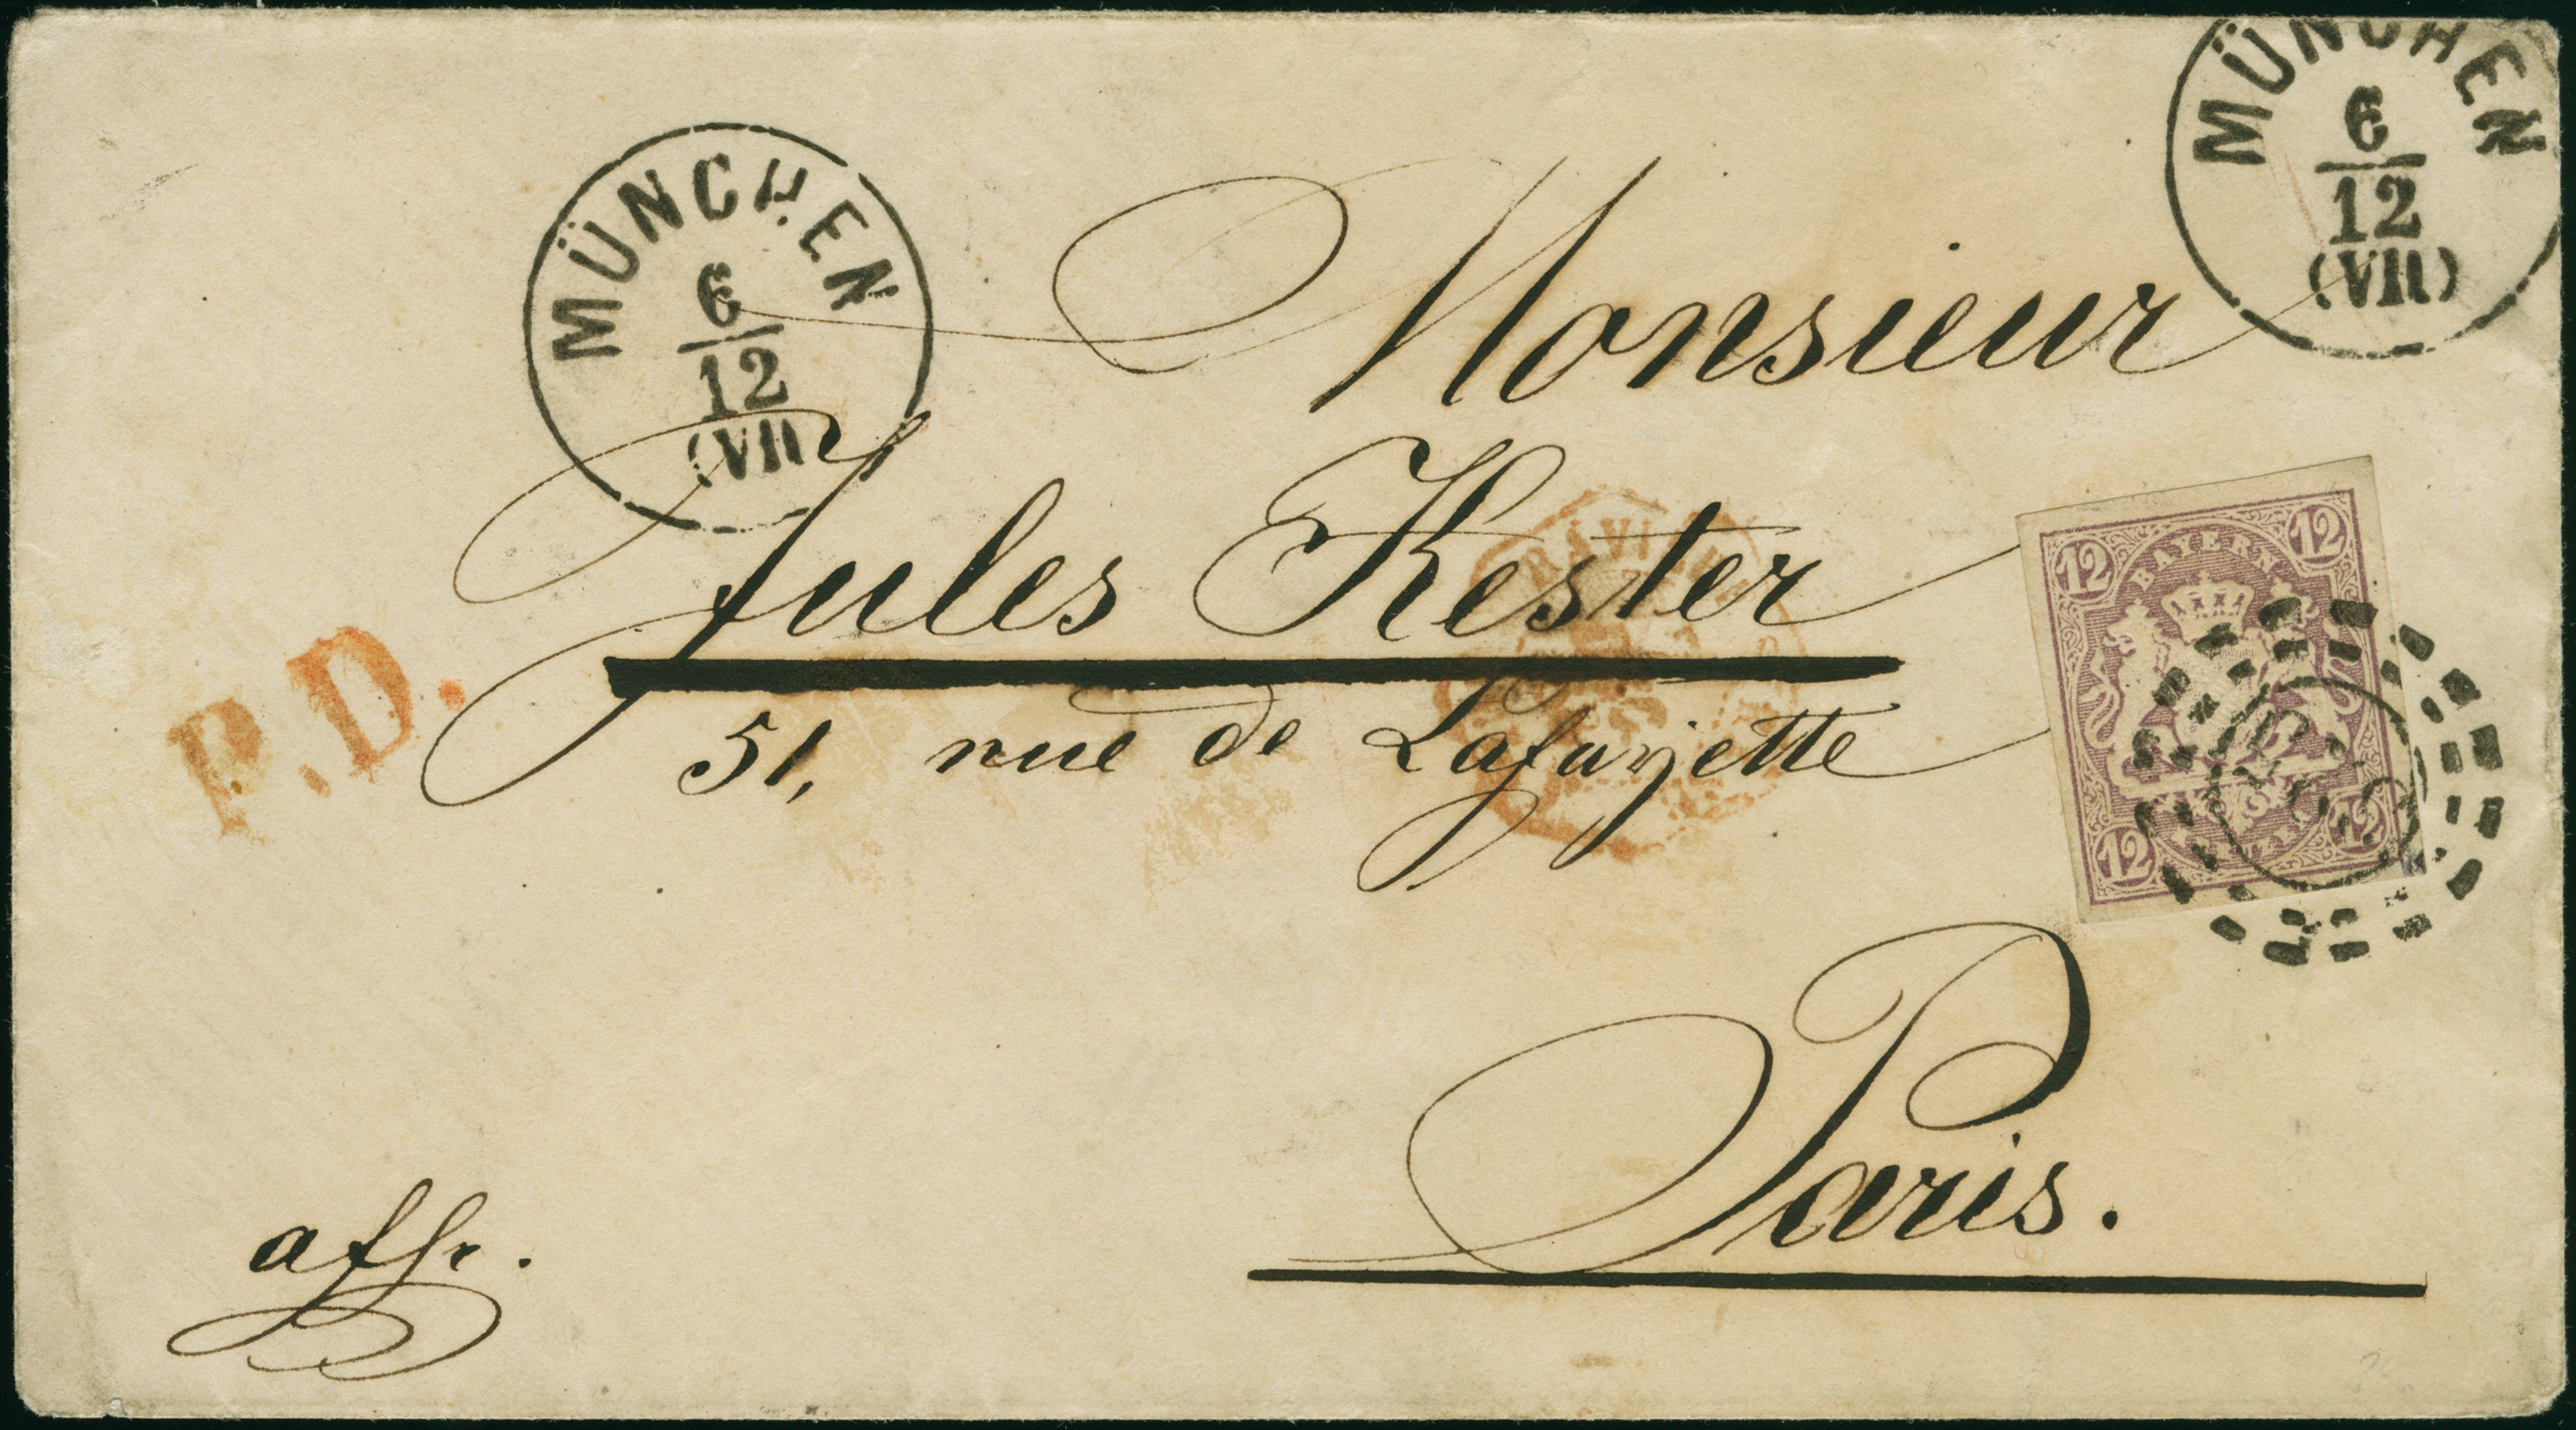 MÜNCHEN
6
12
(VII)
MÜNCHEN
6
12
(VII)
Monsieur
Jules Kester
51, rue de Lafayette
P.D.
12 12
BAYERN
12 12
Paris.
affr.